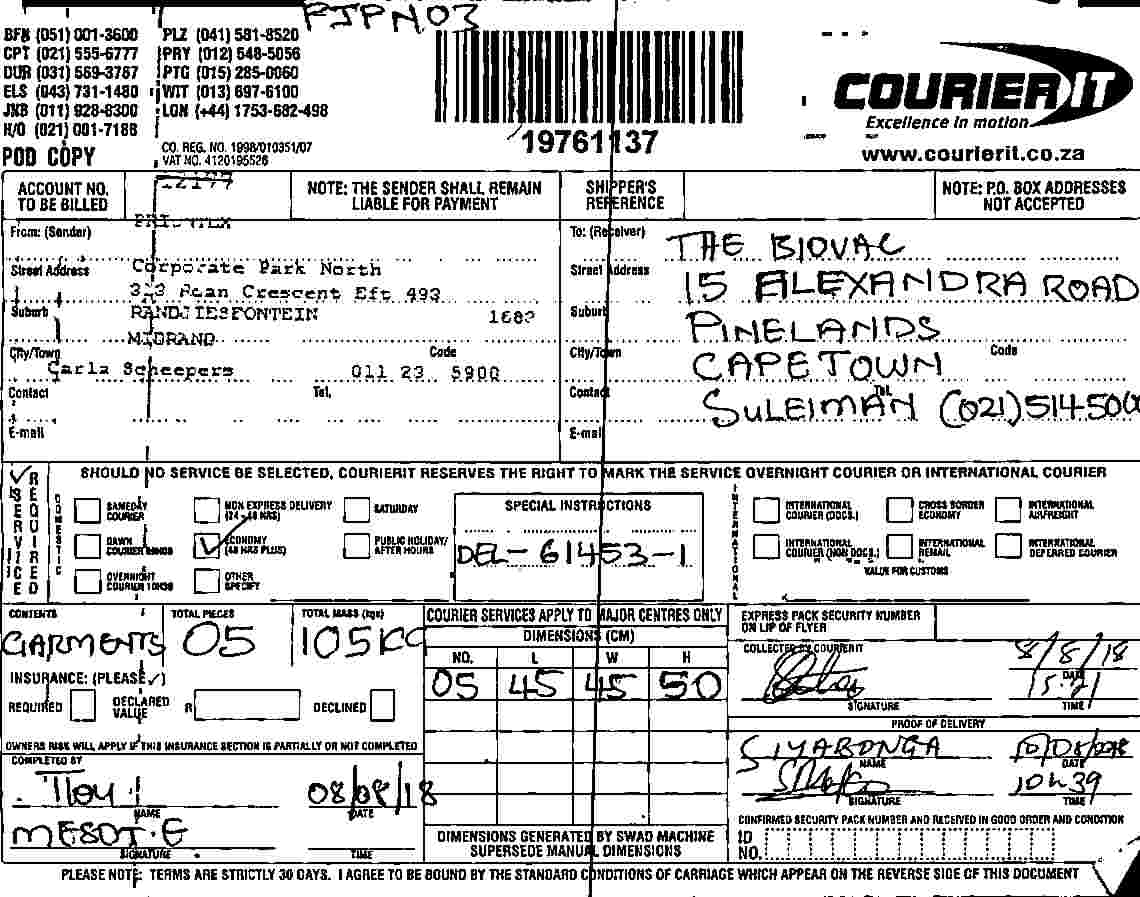 PJPN03
BFN (051) 001-3600 PLZ (041) 581-8520
CPT (021) 555-6777 PRY (012) 548-5056
DUR (031) 569-3767 PTG (015) 285-0060
ELS (043) 731-1480 WIT (013) 697-6100
JNB (011) 928-8300 LON (+44) 1753-682-498
H/O (021) 001-7186
POD COPY
CO. REG. NO. 1998/010351/07
VAT NO. 4120195526
19761137
COURIER IT
Excellence in motion
www.courierit.co.za
ACCOUNT NO. TO BE BILLED
12177
NOTE: THE SENDER SHALL REMAIN LIABLE FOR PAYMENT
SHIPPER'S REFERENCE
NOTE: P.O. BOX ADDRESSES NOT ACCEPTED
From: (Sender)
Street Address Corporate Park North
Crescent Eft 493
Suburb RANDJIESFONTEIN 1682
MIDRAND
City/Town Code
Carla Scheepers 011 23 5900
Contact Tel.
E-mail
To: (Receiver) THE BIOVAC
Street Address 15 ALEXANDRA ROAD
Suburb PINELANDS
City/Town CAPETOWN Code
Contact SULEIMAN Tel. (021) 514-500
E-mail
SERVICE REQUIRED
SHOULD NO SERVICE BE SELECTED, COURIERIT RESERVES THE RIGHT TO MARK THE SERVICE OVERNIGHT COURIER OR INTERNATIONAL COURIER
DOMESTIC
SAMEDAY COURIER
NON EXPRESS DELIVERY (24-48 HRS)
SATURDAY
DAWN COURIER
ECONOMY (48 HRS PLUS)
PUBLIC HOLIDAY/ AFTER HOURS
OVERNIGHT COURIER 10H30
OTHER SPECIFY
SPECIAL INSTRUCTIONS
DEL-61453-1
INTERNATIONAL
INTERNATIONAL COURIER (DOCS.)
CROSS BORDER ECONOMY
INTERNATIONAL AIRFREIGHT
INTERNATIONAL COURIER (NON DOCS.)
INTERNATIONAL REMAIL
INTERNATIONAL DEFERRED COURIER
VALUE FOR CUSTOMS
CONTENTS TOTAL PIECES TOTAL MASS (kgs)
GARMENTS 05 105KG
INSURANCE: (PLEASE ✓)
REQUIRED DECLARED VALUE R DECLINED
OWNERS RISK WILL APPLY IF THIS INSURANCE SECTION IS PARTIALLY OR NOT COMPLETED
COMPLETED BY
08/08/18
NAME DATE
SIGNATURE TIME
COURIER SERVICES APPLY TO MAJOR CENTRES ONLY
DIMENSIONS (CM)
NO. L W H
05 45 45 50
DIMENSIONS GENERATED BY SWAD MACHINE SUPERSEDE MANUAL DIMENSIONS
EXPRESS PACK SECURITY NUMBER ON LIP OF FLYER
COLLECTED BY COURIERIT 8/8/18
DATE
15:21
SIGNATURE TIME
PROOF OF DELIVERY
SIYABONGA 10/08/2018
NAME DATE
10h39
SIGNATURE TIME
CONFIRMED SECURITY PACK NUMBER AND RECEIVED IN GOOD ORDER AND CONDITION
ID NO.
PLEASE NOTE: TERMS ARE STRICTLY 30 DAYS. I AGREE TO BE BOUND BY THE STANDARD CONDITIONS OF CARRIAGE WHICH APPEAR ON THE REVERSE SIDE OF THIS DOCUMENT